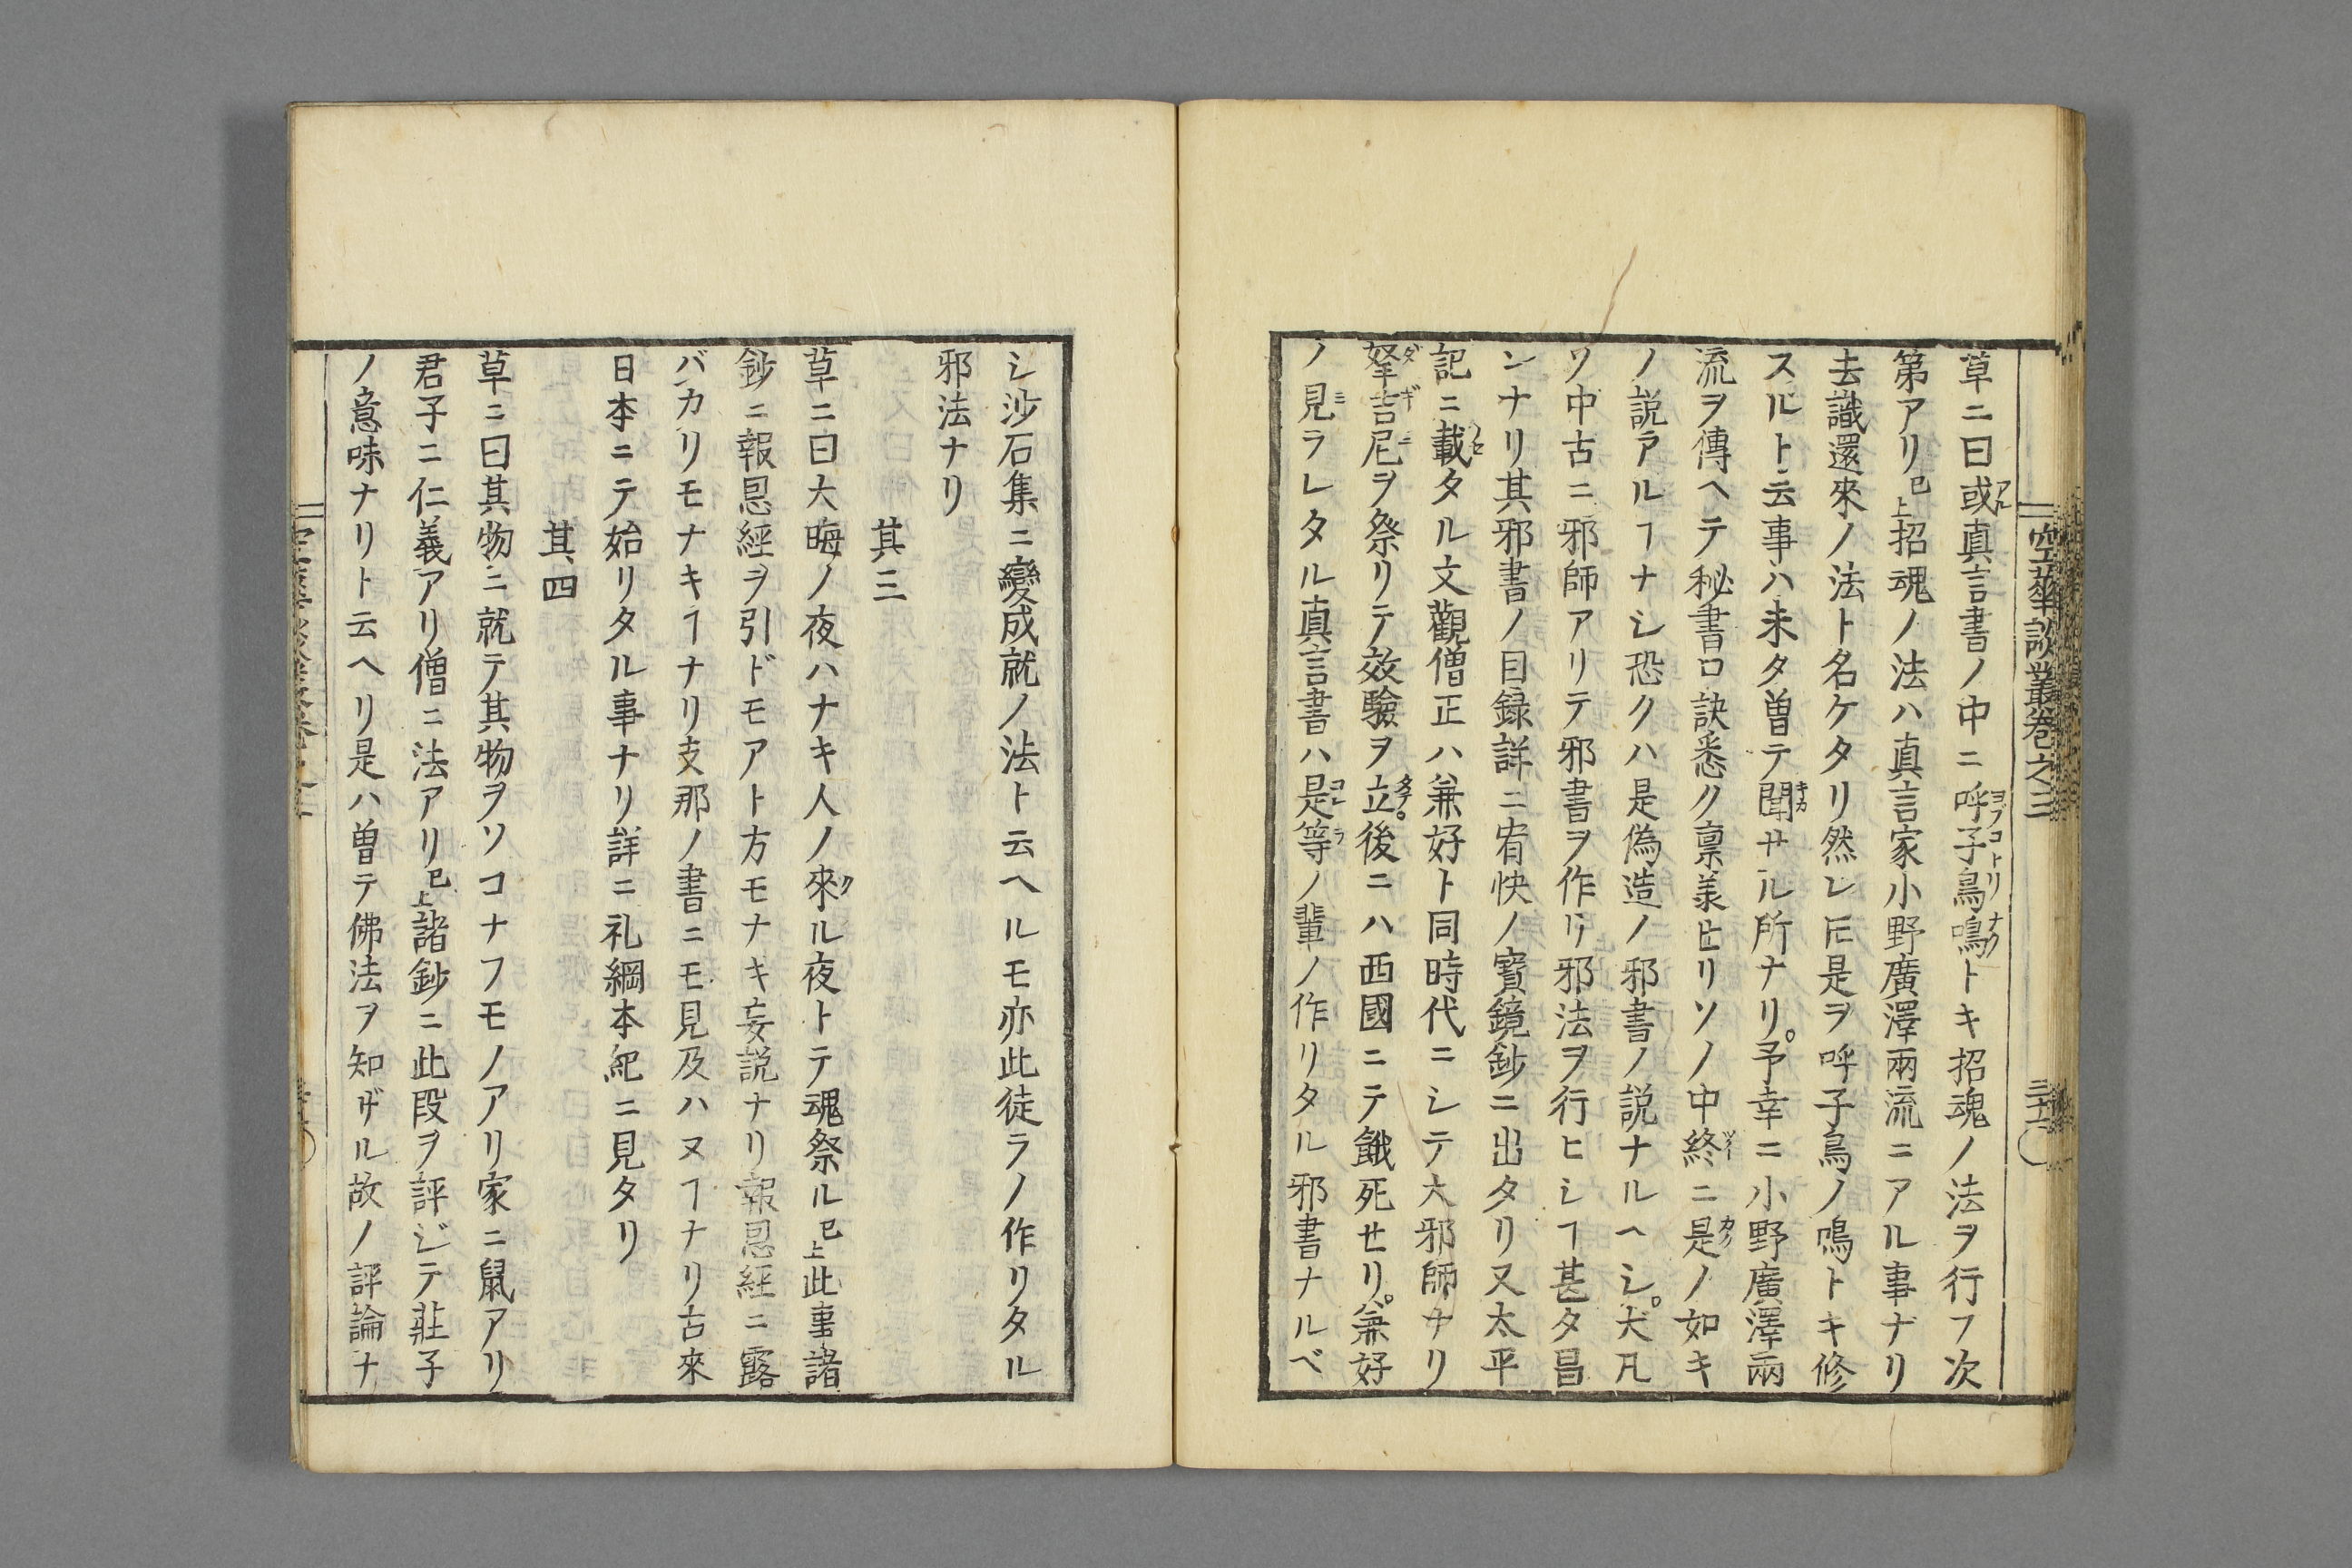 空華談叢巻之三
草ニ曰或真言書ノ中ニ呼子鳥鳴トキ招魂ノ法ヲ行フ次
第アリ已上招魂ノ法ハ真言家小野廣澤兩流ニアル事ナリ
去識還來ノ法ト名ケタリ然レ𪜈是ヲ呼子鳥ノ鳴トキ修
スルト云事ハ未タ曽テ聞サル所ナリ。予幸ニ小野廣澤兩
流ヲ傳ヘテ秘書口訣悉ク禀羕セリソノ中終ニ是ノ如キ
ノ説アルヿナシ恐クハ是偽造ノ邪書ノ説ナルヘシ。大凡
ソ中古ニ邪師アリテ邪書ヲ作リ邪法ヲ行ヒシヿ甚タ昌
ンナリ其邪書ノ目録詳ニ宥快ノ寳鏡鈔ニ出タリ又太平
記ニ載タル文觀僧正ハ兼好ト同時代ニシテ大邪師ナリ
拏吉尼ヲ祭リテ效驗ヲ立。後ニハ西國ニテ餓死セリ。兼好
ノ見ラレタル真言書ハ是等ノ輩ノ作リタル邪書ナルベ
シ沙石集ニ變成就ノ法ト云ヘルモ亦此徒ラノ作リタル
邪法ナリ
其三
草ニ曰大晦ノ夜ハナキ人ノ來ル夜トテ魂祭ル已上此事諸
鈔ニ報恩經ヲ引ドモアト方モナキ妄説ナリ報恩經ニ露
バカリモナキヿナリ支那ノ書ニモ見及ハヌヿナリ古來
日本ニテ始リタル事ナリ詳ニ礼綱本紀ニ見タリ
其四
草ニ曰其物ニ就テ其物ヲソコナフモノアリ家ニ鼠アリ
君子ニ仁義アリ僧ニ法アリ已上諸鈔ニ此段ヲ評ジテ莊子
ノ意味ナリト云ヘリ是ハ曽テ佛法ヲ知ザル故ノ評論ナ